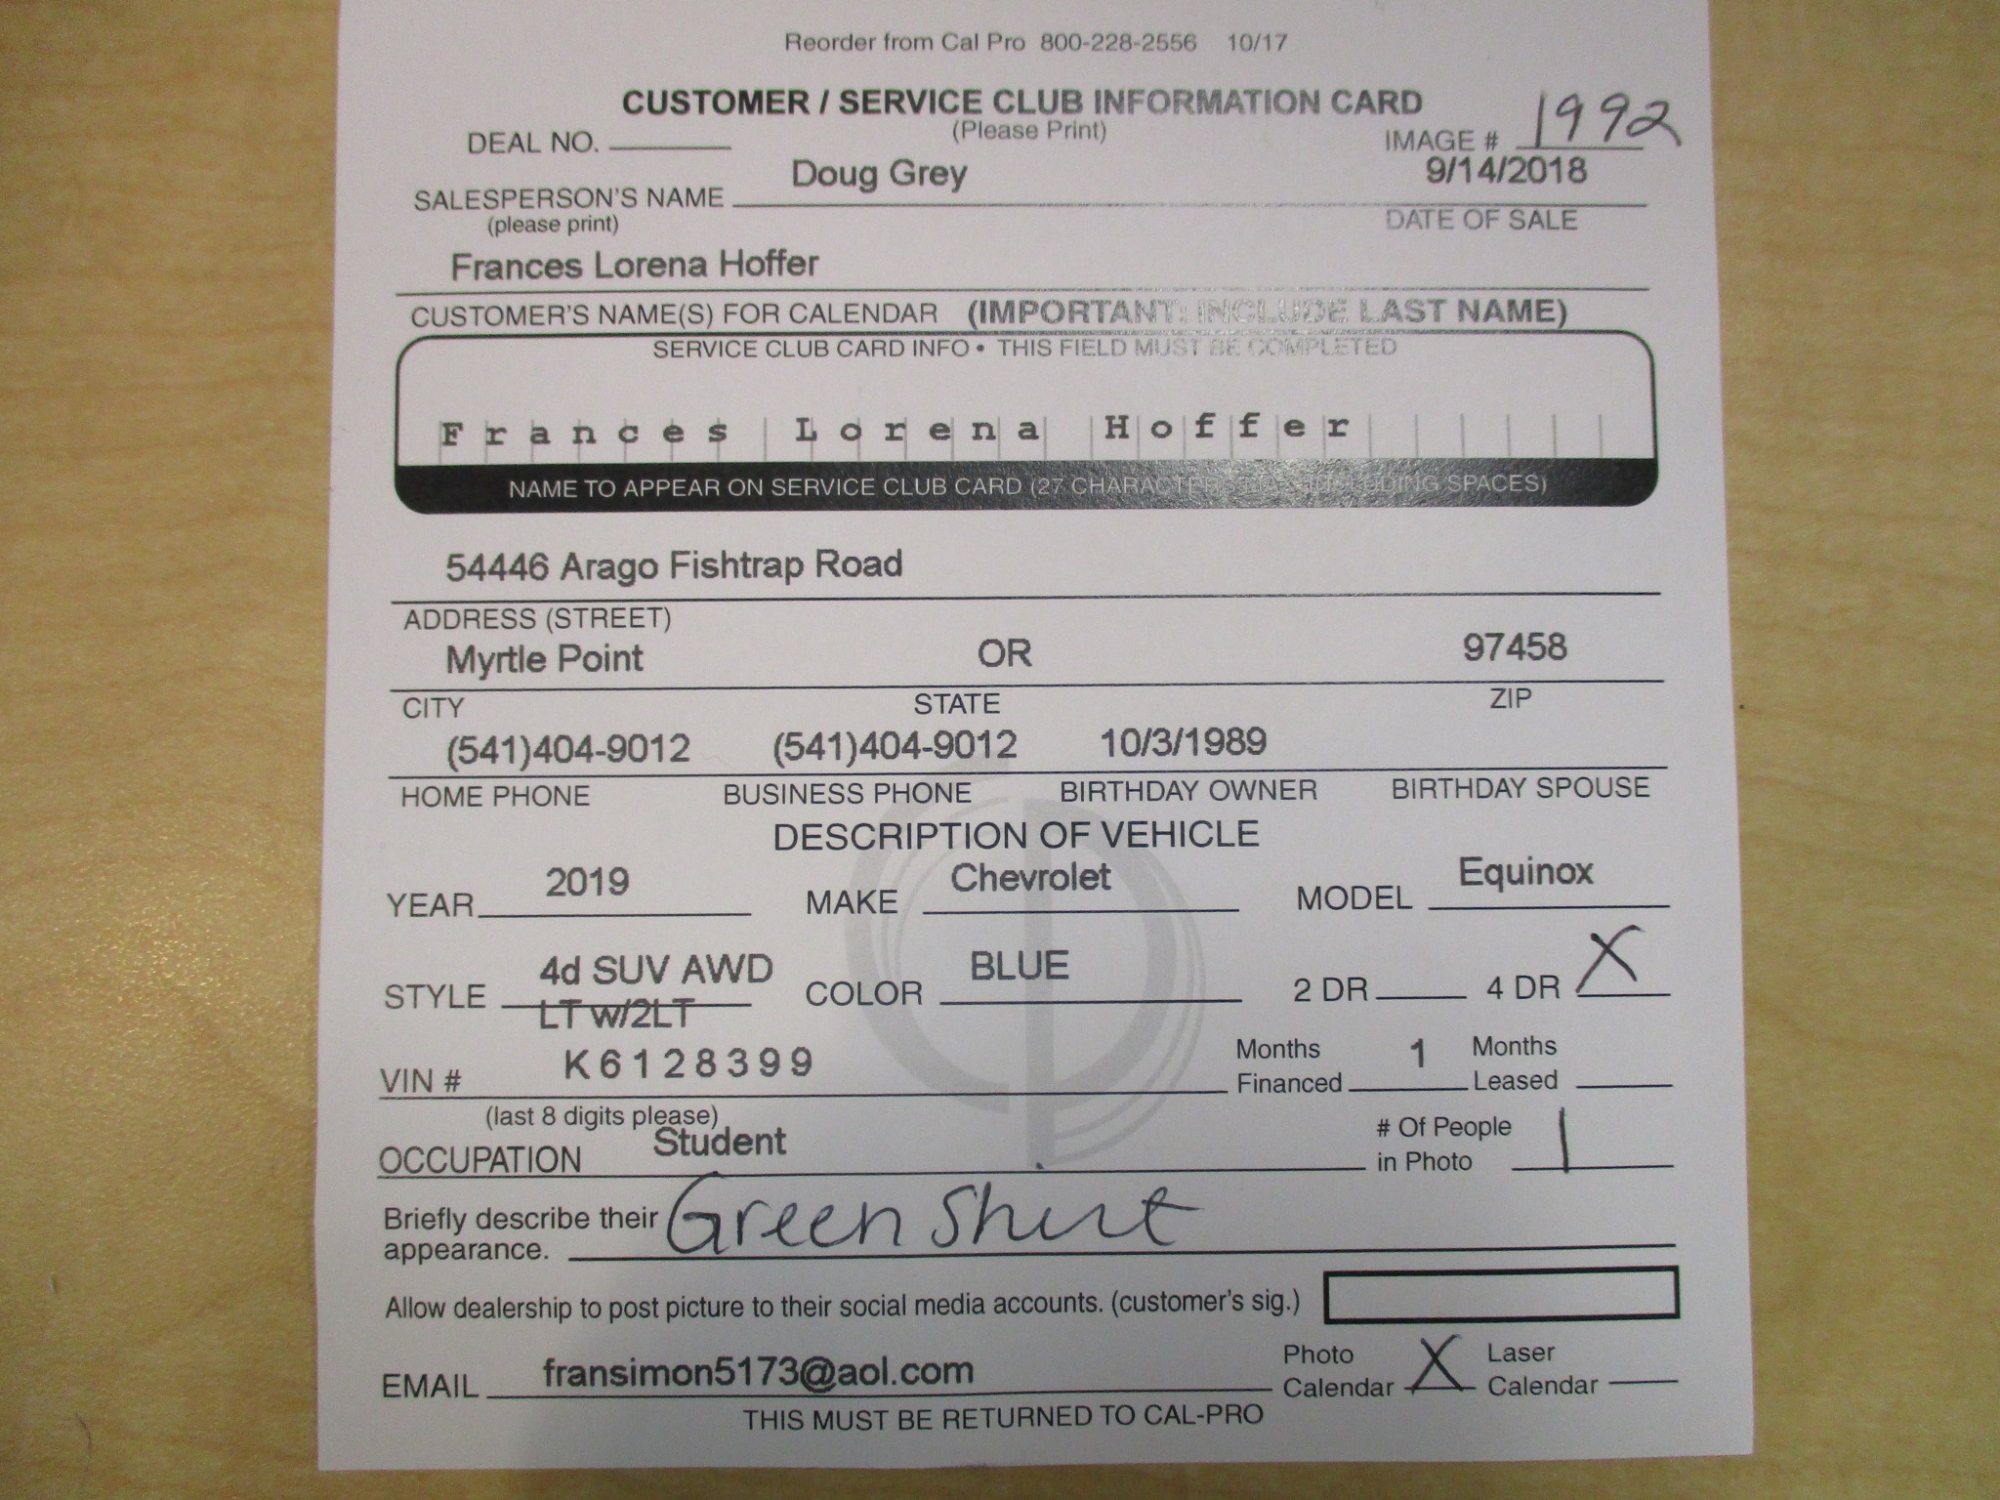 Reorder from Cal Pro 800-228-2556 10/17
CUSTOMER / SERVICE CLUB INFORMATION CARD
(Please Print)
DEAL NO.
IMAGE # 1992
SALESPERSON'S NAME Doug Grey 9/14/2018
(please print) DATE OF SALE
Frances Lorena Hoffer
CUSTOMER'S NAME(S) FOR CALENDAR (IMPORTANT: INCLUDE LAST NAME)
SERVICE CLUB CARD INFO • THIS FIELD MUST BE COMPLETED
Frances Lorena Hoffer
NAME TO APPEAR ON SERVICE CLUB CARD (27 INCLUDING SPACES)
54446 Arago Fishtrap Road
ADDRESS (STREET)
Myrtle Point OR 97458
CITY STATE ZIP
(541)404-9012 (541)404-9012 10/3/1989
HOME PHONE BUSINESS PHONE BIRTHDAY OWNER BIRTHDAY SPOUSE
DESCRIPTION OF VEHICLE
YEAR 2019 MAKE Chevrolet MODEL Equinox
STYLE 4d SUV AWD COLOR BLUE 2 DR 4 DR X
LT w/2LT
VIN # K6128399 Months Financed 1 Months Leased
(last 8 digits please)
OCCUPATION Student # Of People in Photo 1
Briefly describe their appearance. Green Shirt
Allow dealership to post picture to their social media accounts. (customer's sig.)
EMAIL fransimon5173@aol.com Photo Calendar X Laser Calendar
THIS MUST BE RETURNED TO CAL-PRO